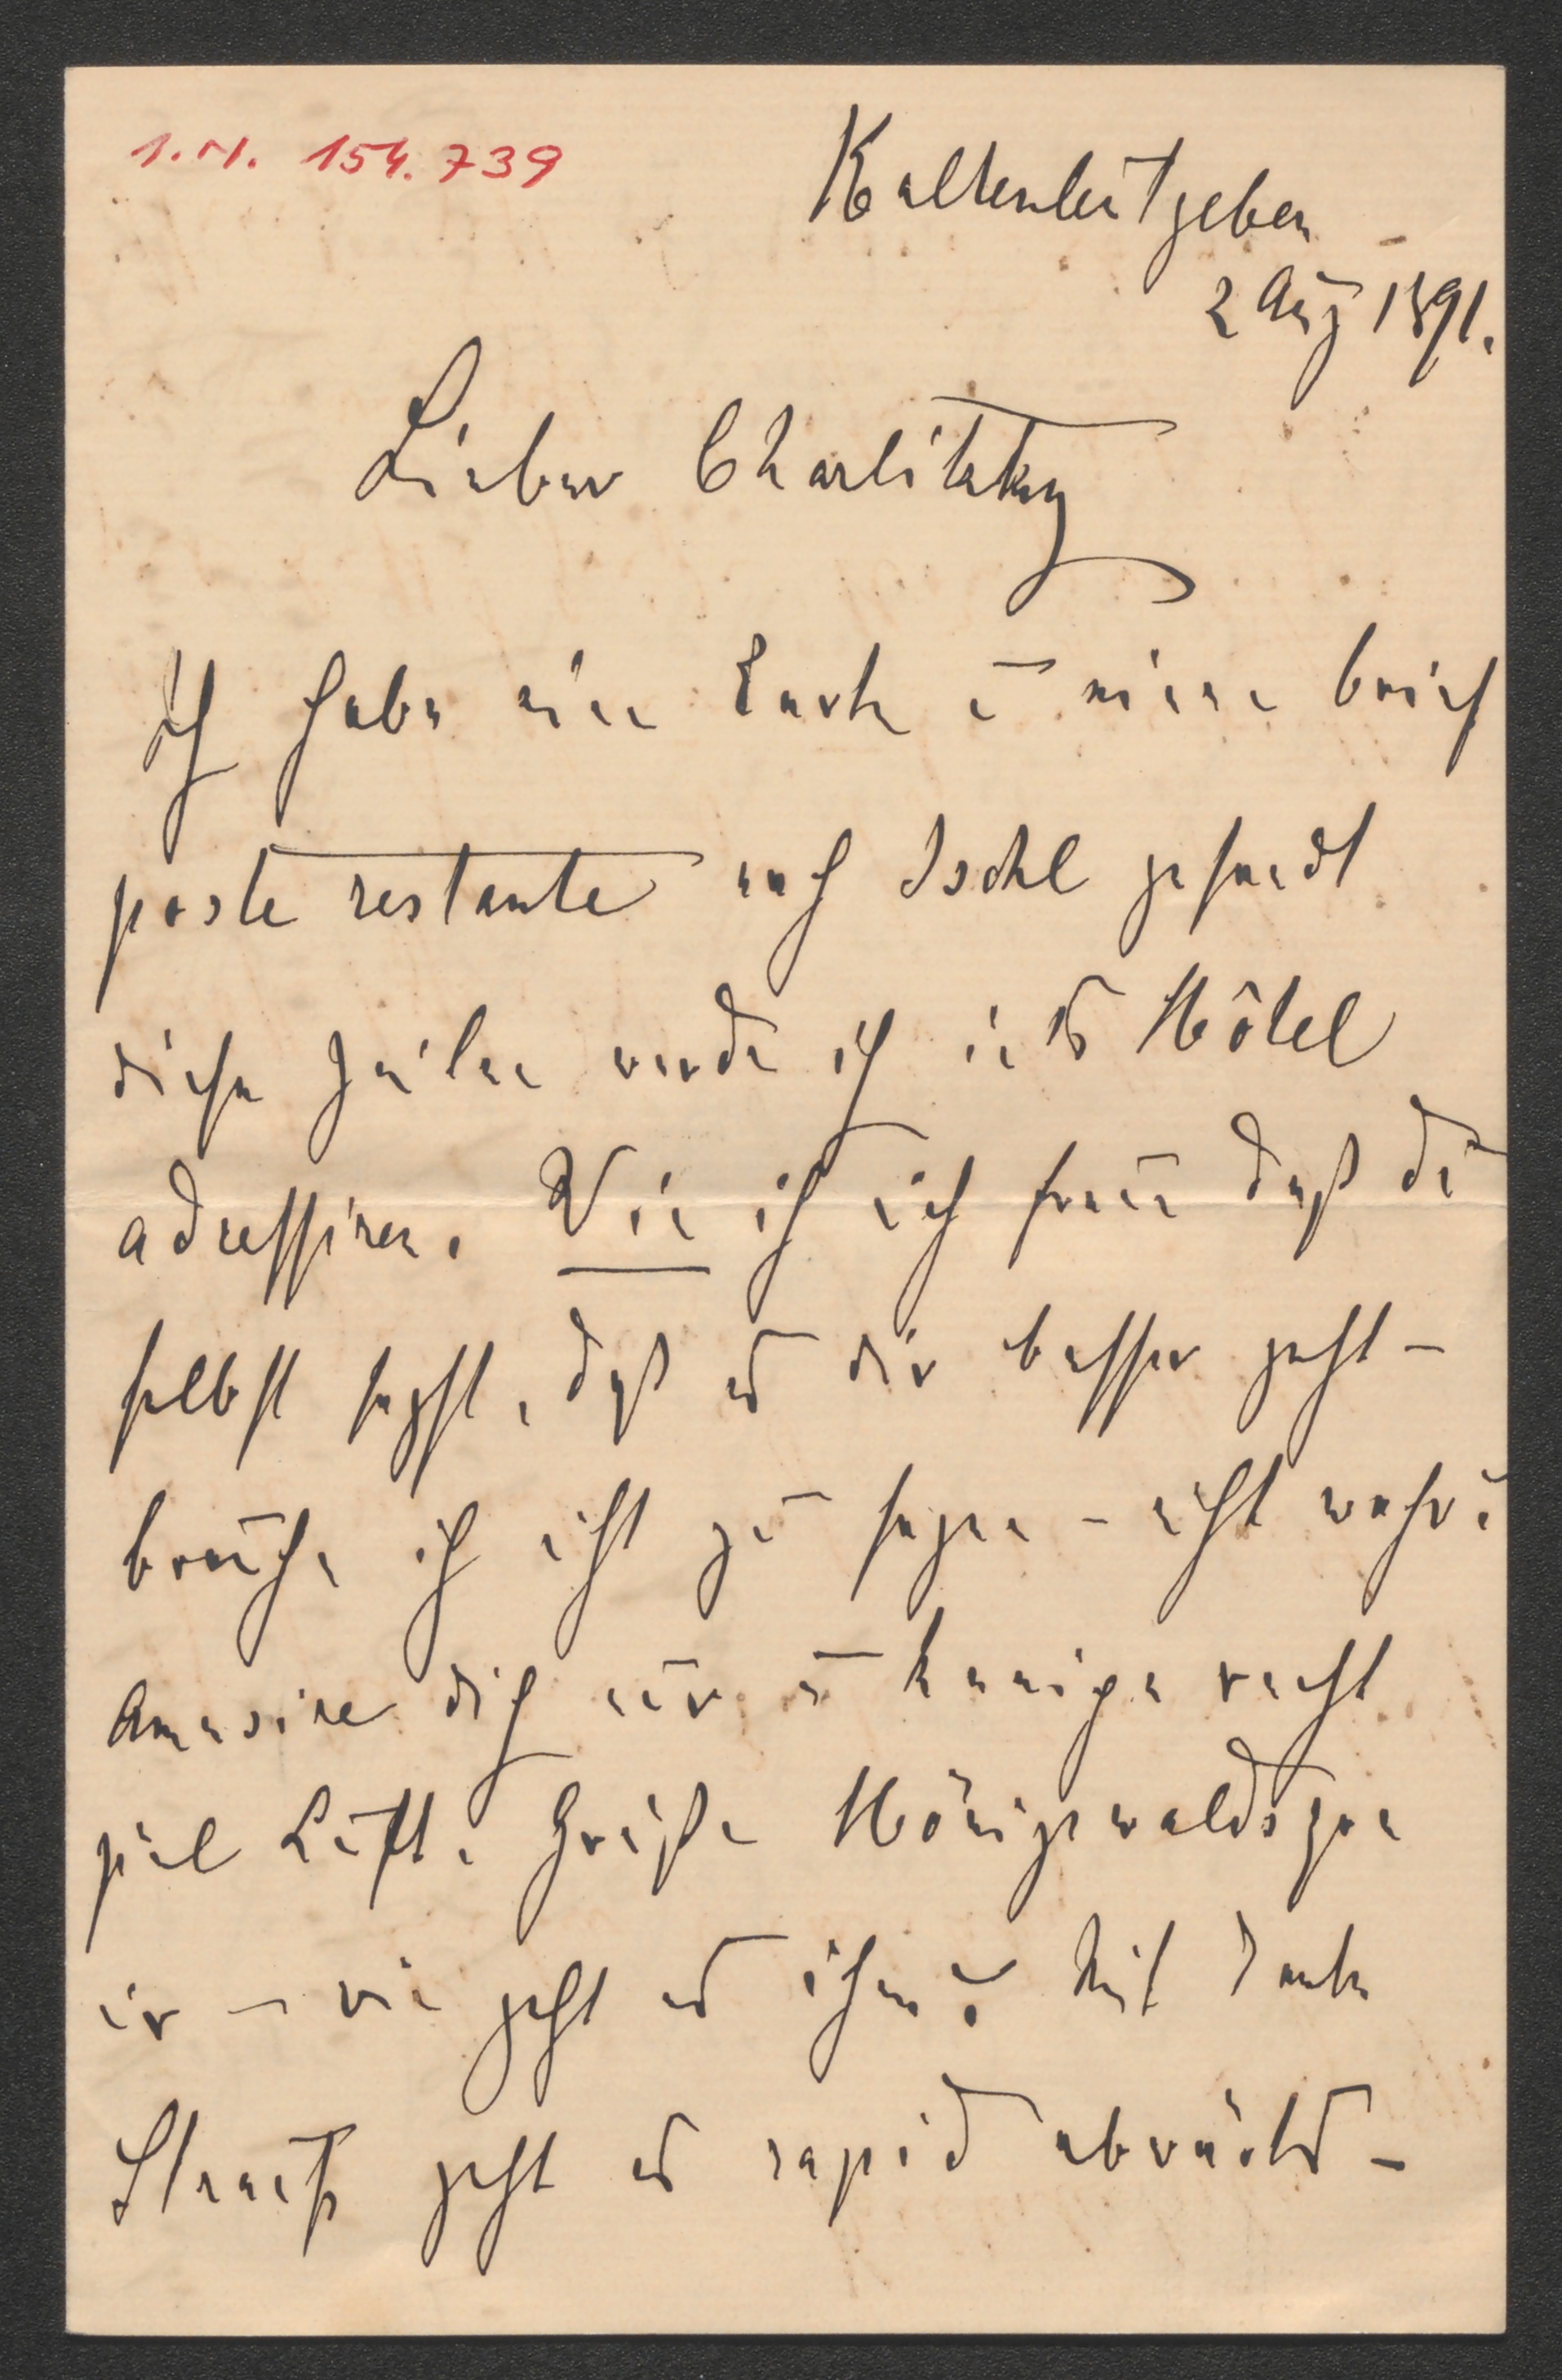 I. N. 154.739
Kaltenleutgeben
2 Aug 1891.
Lieber Charlitzky
Ich habe eine Karte u einen brief
poste restante nach Ischl gesandt
diese Zeilen werde ich ins Hôtel
adressiren. Wie ich mich freue daß du
selbst sagst, daß es dir besser geht –
brauche ich nicht zu sagen – nicht wahr?
Amusire dich nur u kneipe recht
viel Luft. Grüße Hönigswald von
mir – wie geht es ihm? Mit Tante
Strauß geht es rapid abwärts –